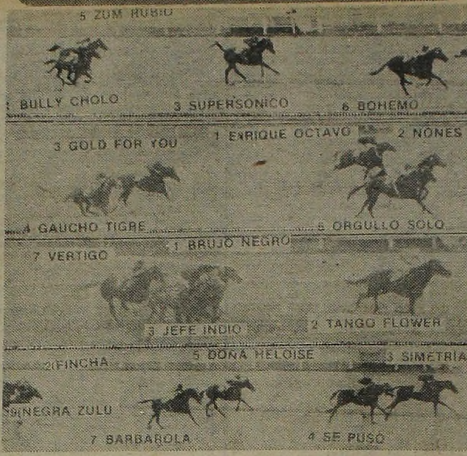 5 ZUM RUBIO
BULLY CHOLO 3 SUPERSONICO 6 BOHEMO
3 GOLD FOR YOU 1 ENRIQUE OCTAVO 2 NONES
4 GAUCHO TIGRE 5 ORGULLO SOLO
7 VERTIGO 1 BRUJO NEGRO
3 JEFE INDIO 2 TANGO FLOWER
2 FINCHA 5 DOÑA HELOISE 3 SIMETRIA
9 NEGRA ZULU
7 BARBAROLA 4 SE PUSO